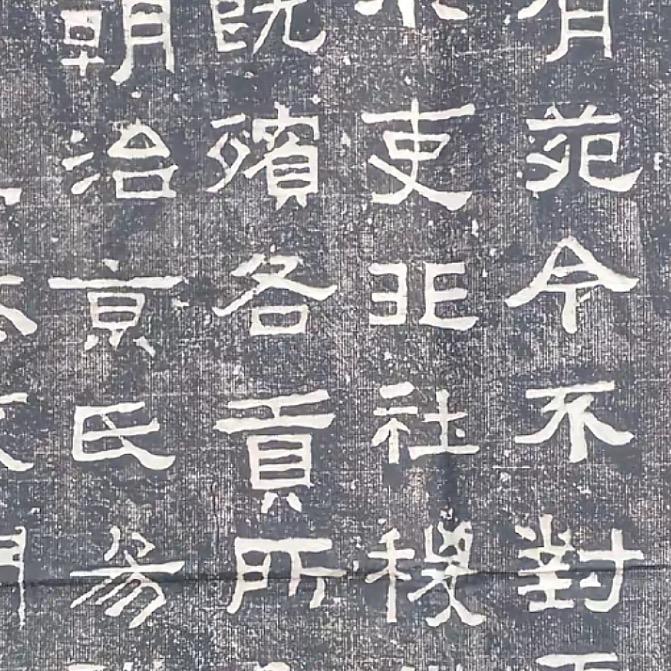 有苑令不對
小吏非社稷
既殯各貢所
朝治京氏易